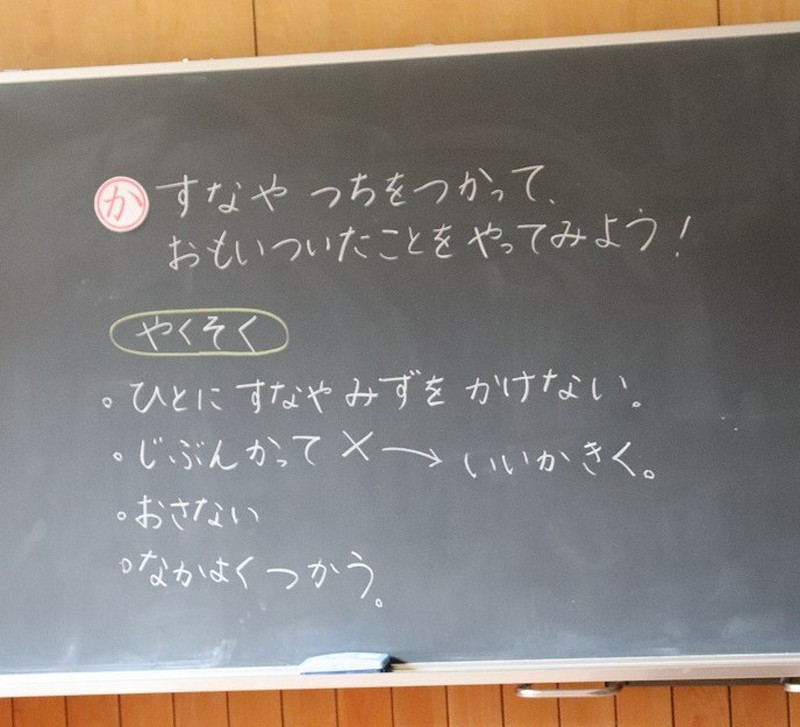 か すなや つちをつかって、
おもいついたことを やってみよう!
やくそく
・ひとに すなや みずを かけない。
・じぶんかって × → いいかきく。
・おさない
・なかよくつかう。